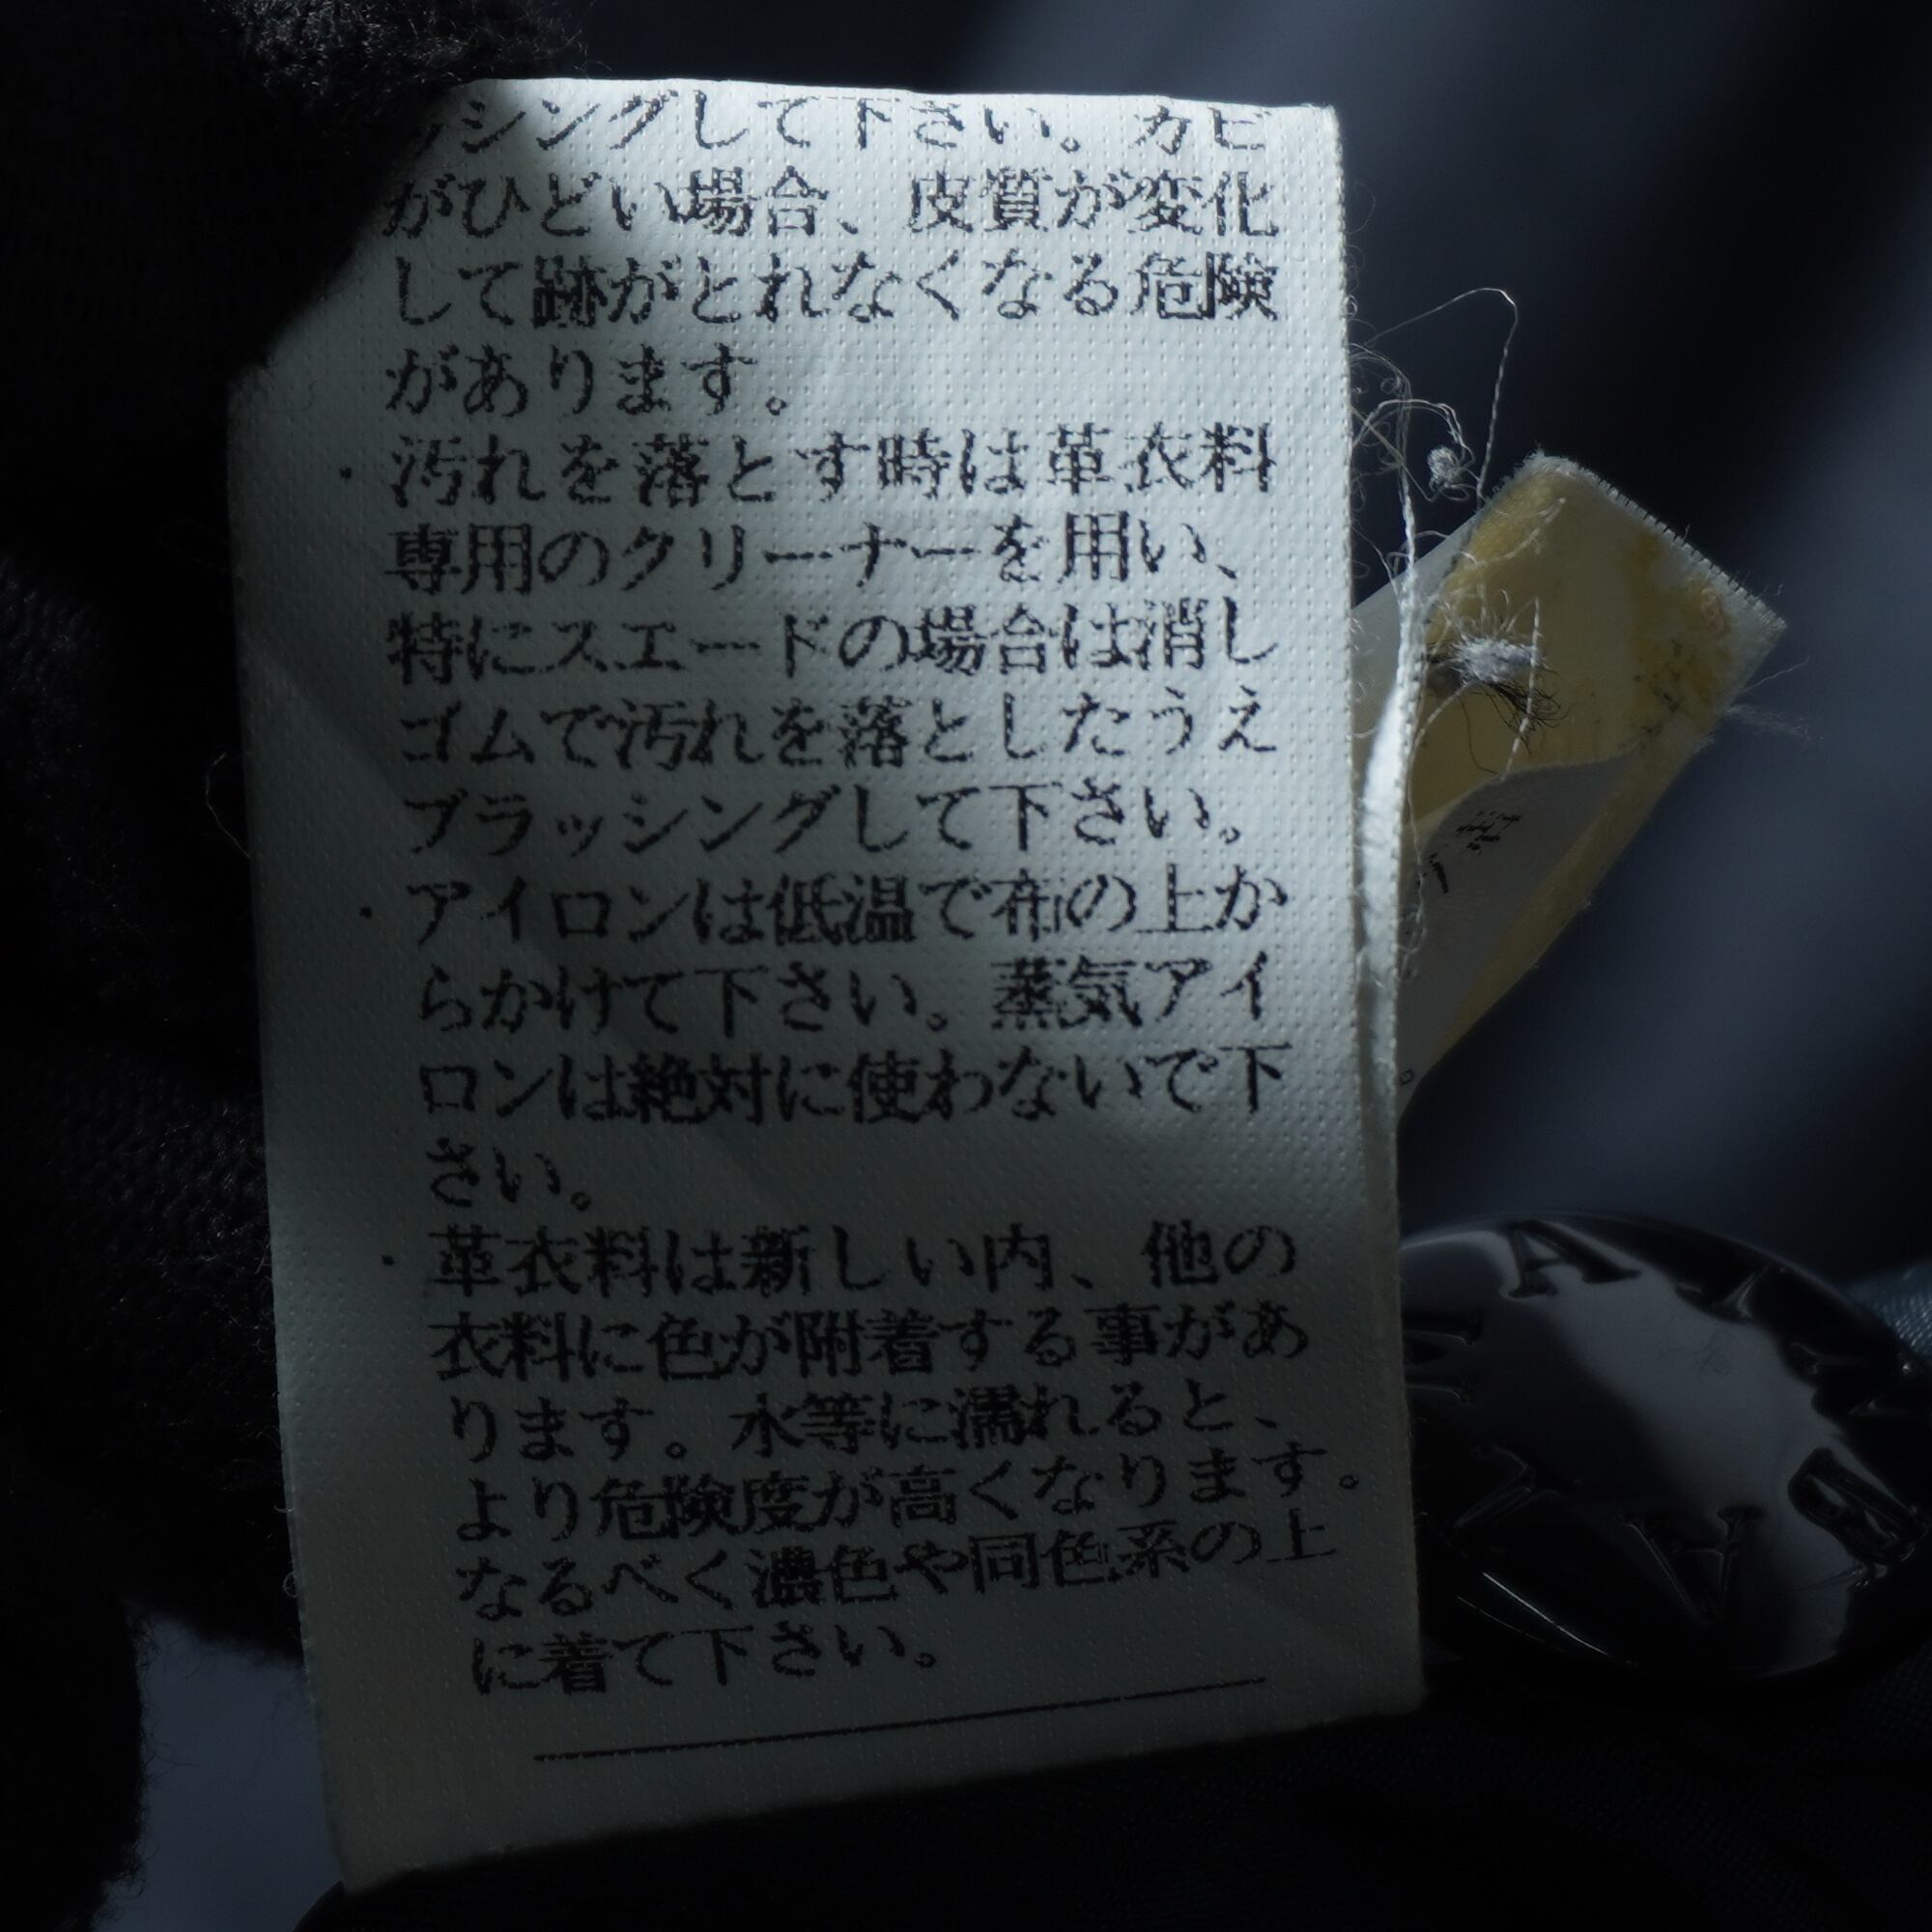 ッシングして下さい。カビ
がひどい場合、皮質が変化
して跡がとれなくなる危険
があります。
・汚れを落とす時は革衣料
専用のクリーナーを用い、
特にスエードの場合は消し
ゴムで汚れを落としたうえ
ブラッシングして下さい。
・アイロンは低温で布の上か
らかけて下さい。蒸気アイ
ロンは絶対に使わないで下
さい。
・革衣料は新しい内、他の
衣料に色が附着する事があ
ります。水等に濡れると、
より危険度が高くなります。
なるべく濃色や同色系の上
に着て下さい。